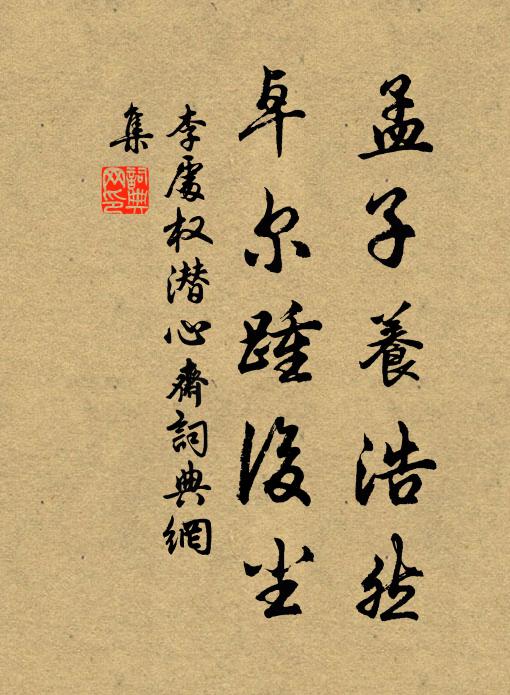 孟子養浩然
卓尔踵後尘
李處权潜心齋詞典網
集
詞典
网印